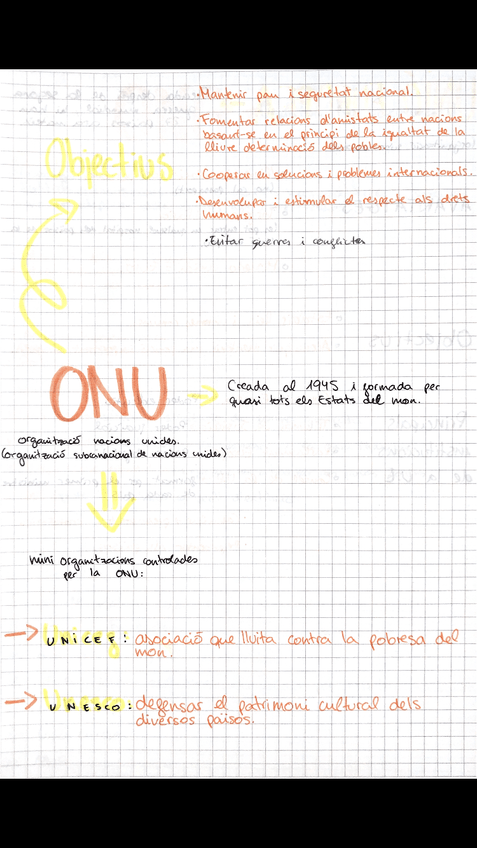 · Mantenir pau i seguretat nacional.
· Fomentar relacions d'amistats entre nacions
basant-se en el principi de la igualtat de la
lliure determinació dels pobles.
Objectius
· Cooperar en solucions i problemes internacionals.
· Desenvolupar i estimular el respecte als drets
humans.
· Evitar guerres i conflictes
ONU
Creada al 1945 i formada per
quasi tots els Estats del mon.
organització nacions unides.
(organització subranacional de nacions unides)
mini organitzacions controlades
per la ONU:
UNICEF: asociació que lluita contra la pobresa del
mon.
UNESCO: defensar el patrimoni cultural dels
diversos països.